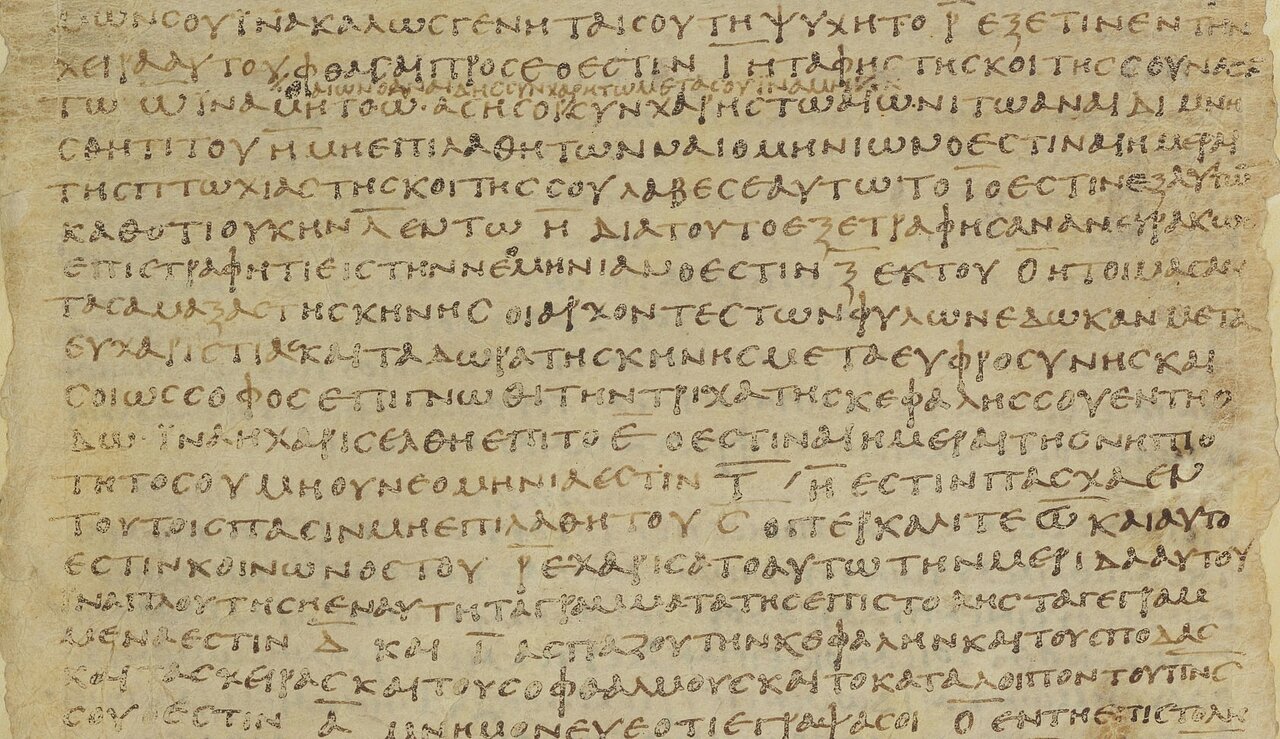 ΙΝΑ ΚΑΛΩϹ ΓΕΝΗΤΑΙ ϹΟΥ ΤΗ ΨΥΧΗ ΤΟ Ρ̅ ΕΞΕΤΙΝΕΝ ΤΗΝ
ΧΕΙΡΑ ΑΥΤΟΥ ΦΘΑϹΑΙ ΠΡΟϹ Ε Ο ΕϹΤΙΝ Ι̅ Η ΤΑΦΗϹ ΤΗϹ ΚΟΙΤΗϹ
ϹΥΝΧΑΡΗΤΩ ΜΕΤΑ ϹΟΥ ΙΝΑ ΜΗ
ΤΩ Ω̅ ΙΝΑ ΜΗ ϹΥΝΧΑΡΗϹ ΤΩ ΑΙΩΝΙ ΤΩ ΑΝΑΙΔΙ ΜΝΗ
ϹΘΗΤΙ ΤΟΥ Η̅ ΜΗ ΕΠΙΛΑΘΗ ΤΩΝ ΝΑΙΟΜΗΝΙΩΝ Ο ΕϹΤΙΝ ΑΙ ΗΜΕΡΑΙ
ΤΗϹ ΠΤΩΧΙΑϹ ΤΗϹ ΚΟΙΤΗϹ ϹΟΥ ΛΑΒΕ ϹΕΑΥΤΩ ΤΟ Ι̅ Ο ΕϹΤΙΝ ΕΞ ΑΥΤΩΝ
ΚΑΘΟΤΙ ΟΥΚ ΗΝ Λ̅ ΕΝ ΤΩ Η̅ ΔΙΑ ΤΟΥΤΟ ΕΞΕΤΡΑΦΗϹΑΝ
ΕΠΙϹΤΡΑΦΗΤΙ ΕΙϹ ΤΗΝ ΝΕΟΜΗΝΙΑΝ Ο ΕϹΤΙΝ Ξ̅ ΕΚ ΤΟΥ Ο̅ ΗΤΟΙΜΑϹΑΝ
ΤΑϹ ΑΜΑΞΑϹ ΤΗϹ ϹΚΗΝΗϹ ΟΙ ΑΡΧΟΝΤΕϹ ΤΩΝ ΦΥΛΩΝ ΕΔΩΚΑΝ ΜΕΤΑ
ΕΥΧΑΡΙϹΤΙΑϹ ΚΑΙ ΤΑ ΔΩΡΑ ΤΗϹ ϹΚΗΝΗϹ ΜΕΤΑ ΕΥΦΡΟϹΥΝΗϹ ΚΑΙ
ϹΟΙ ΩϹ ϹΟΦΟϹ ΕΠΙΓΝΩΘΙ ΤΗΝ ΤΡΙΧΑ ΤΗϹ ΚΕΦΑΛΗϹ ϹΟΥ ΕΝ ΤΗ Ο
ΔΩ ΙΝΑ Η ΧΑΡΙϹ ΕΛΘΗ ΕΠΙ ΤΟ Ε̅ Ο ΕϹΤΙΝ ΑΙ ΗΜΕΡΑΙ ΤΗϹ ΝΗΠΙΟ
ΤΗΤΟϹ ϹΟΥ ΜΗ ΟΥ ΝΕΟΜΗΝΙΑ ΕϹΤΙΝ Τ̅ Η̅ ΕϹΤΙΝ ΠΑϹΧΑ ΕΝ
ΤΟΥΤΟΙϹ ΠΑϹΙΝ ΜΗ ΕΠΙΛΑΘΗ ΤΟΥ Ϲ̅ ΟΠΕΡ ΚΑΛΙΤΕ Ω̅ ΚΑΙ ΑΥΤΟ
ΕϹΤΙΝ ΚΟΙΝΩΝΟϹ ΤΟΥ Ρ̅ ΕΧΑΡΙϹΑΤΟ ΑΥΤΩ ΤΗΝ ΜΕΡΙΔΑ ΑΥΤΟΥ
ΙΝΑ ΠΛΟΥΤΗϹΗ ΕΝ ΑΥΤΗ ΤΑ ΓΡΑΜΜΑΤΑ ΤΗϹ ΕΠΙϹΤΟΛΗϹ ΤΑ ΓΕΓΡΑΜ
ΜΕΝΑ ΕϹΤΙΝ Δ̅ ΚΑΙ Γ̅ ΑϹΠΑΖΟΥ ΤΗΝ ΚΕΦΑΛΗΝ ΚΑΙ ΤΟΥϹ ΠΟΔΑϹ
ΚΑΙ ΤΑϹ ΧΕΙΡΑϹ ΚΑΙ ΤΟΥϹ ΟΦΘΑΛΜΟΥϹ ΚΑΙ ΤΟ ΚΑΤΑΛΟΙΠΟΝ ΤΟΥ Π̅Ν̅Ϲ̅
ϹΟΥ Ο ΕϹΤΙΝ Α̅ ΜΝΗΜΟΝΕΥΕ ΟΤΙ ΕΓΡΑΨΑ ϹΟΙ Ο̅ ΕΝ ΤΗ ΕΠΙϹΤΟΛΗ